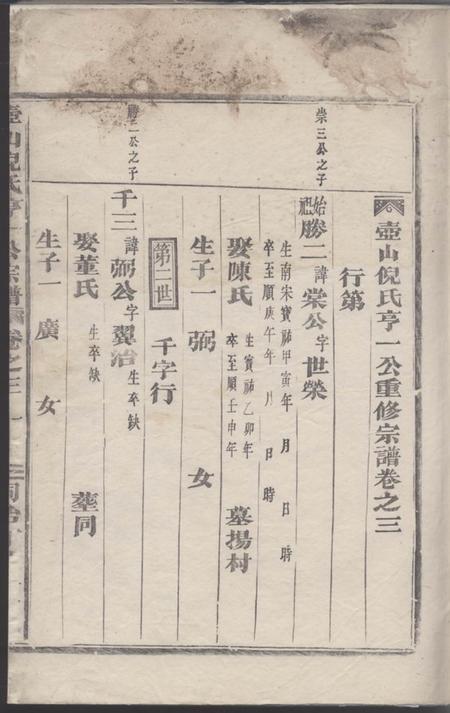 壺山倪氏亨一公重修宗譜卷之三
行第
崇三公之子
始祖勝二諱棠公字世榮
生南宋寶祐甲寅年 月 日 時
卒至順庚午年 月 日 時
娶陳氏 生寶祐乙卯年 卒至順壬申年 墓揚村
生子一 弼 女
第二世 千字行
勝二公之子
千三諱弼公字翼治 生卒缺
娶董氏 生卒缺 墓同
生子一 廣 女
壺山倪氏亨一公宗譜 卷之三